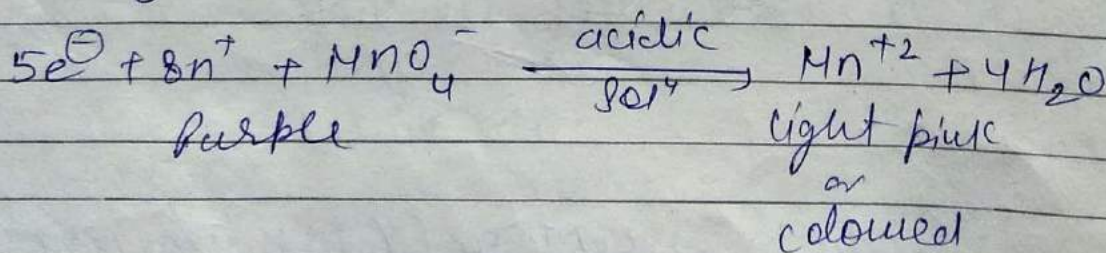 5e⊖ + 8n⁺ + MnO₄⁻ —acidic solⁿ→ Mn⁺² + 4H₂O
Purple light pink
or
coloured